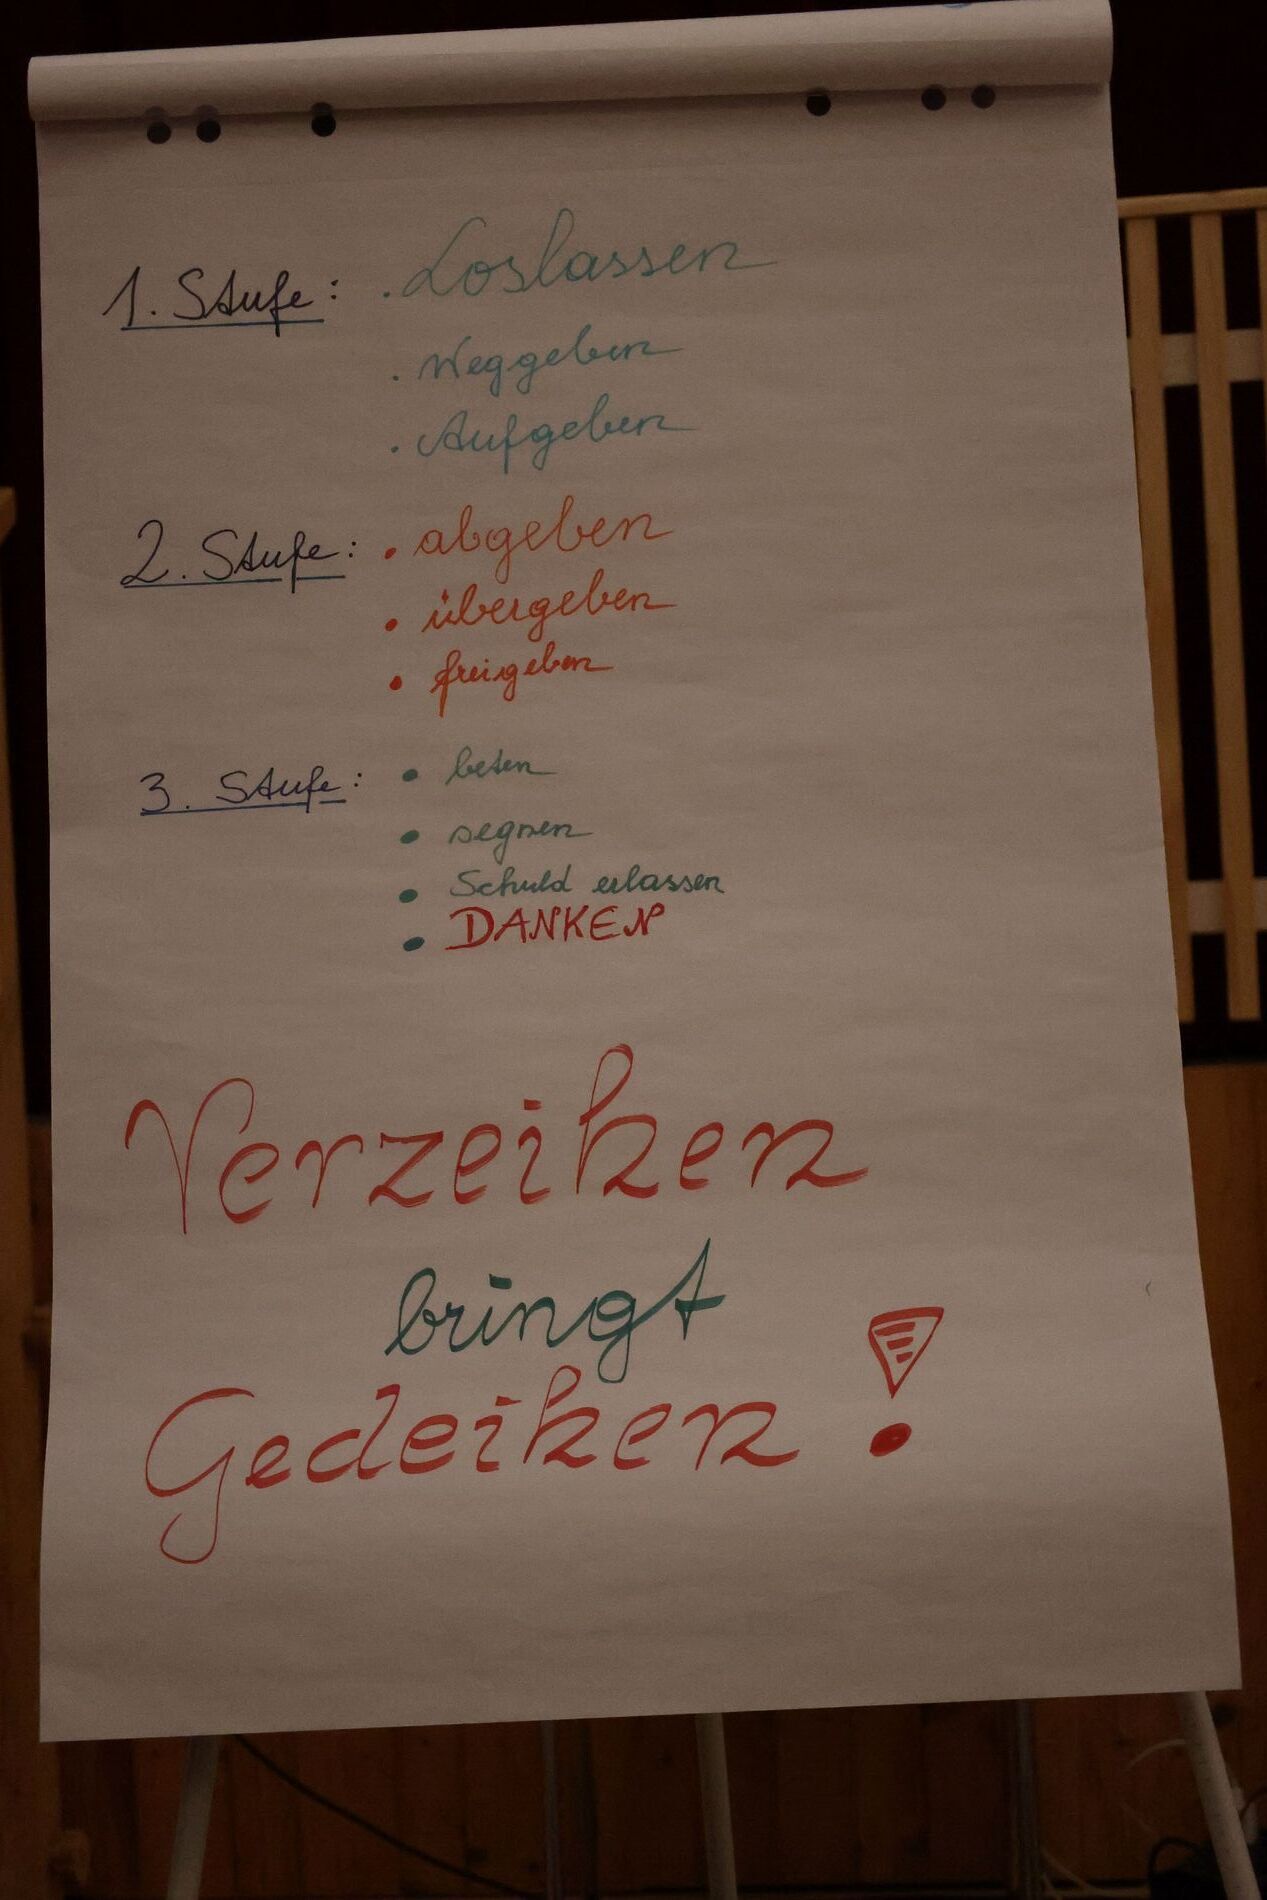 1. Stufe: . Loslassen
. Weggeben
. Aufgeben
2. Stufe: • abgeben
• übergeben
• freigeben
3. Stufe: • beten
• segnen
• Schuld erlassen
• DANKEN
Verzeihen
bringt
Gedeihen !